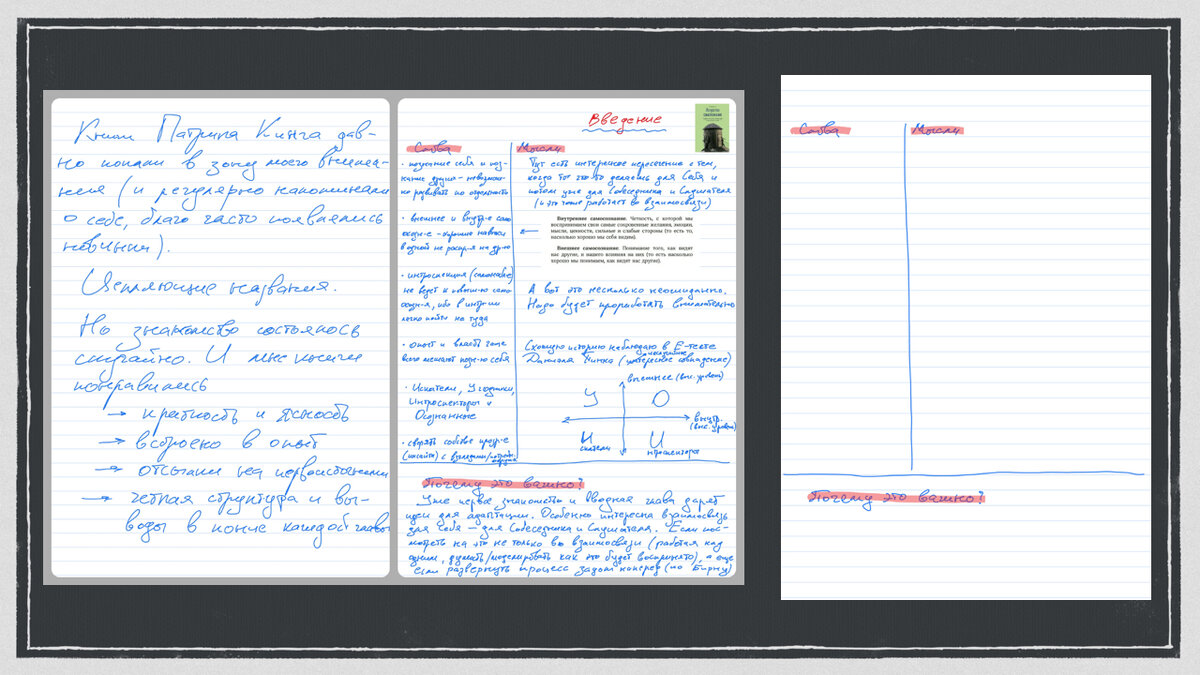 Книги Патрика Кинга дав-
но попали в зону моего внима-
ния (и регулярно напоминали
о себе, благо часто появлялись
новинки).
Цепляющие названия.
Но знакомство состоялось
случайно. И мне книги
понравились
→ краткость и ясность
→ встроено в опыт
→ отсылки на первоисточники
→ четкая структура и вы-
воды в конце каждой главы
Введение
Слова
• познание себя и поз-
нание других - невозмож-
но развивать по отдельности
• внешнее и внутр-е само
созн-е - хорошие навыки
в одной не распр-я на др-ю
• интроспекция (самоанализ)
не ведет к повыш-ю само-
созн-я, ибо в интр-ии
легко пойти не туда
• опыт и власть чаще
всего мешают позн-ю себя
• Искатели, Угодники,
Интроспекторы и
Осознанные
• сверять собств-е
(инсайты) с взглядами
Мысли
Тут есть интересное пересечение с тем,
когда тот что-то делаешь для Себя и
потом уже для Собеседника и Слушателя
(и это тоже работает во взаимосвязи)
Внутреннее самосознание. Четкость, с которой мы
воспринимаем свои самые сокровенные желания, эмоции,
мысли, ценности, сильные и слабые стороны (то есть то,
насколько хорошо мы себя видим).
Внешнее самосознание. Понимание того, как видят
нас другие, и нашего влияния на них (то есть насколько
хорошо мы понимаем, как видят нас другие).
А вот это несколько неожиданно.
Надо будет проработать внимательно
Схожую историю наблюдаю в Е-тексте
Даниэля Пинка (интересное совпадение)
внешнее (выс. уровень)
У О
внутр.
(выс. уровень)
И И
искатели интроспекторы
Почему это важно?
Уже первое знакомство и Вводная глава дарят
идеи для адаптации. Особенно интересна взаимосвязь
для Себя — для Собеседника и Слушателя. Если пос-
мотреть на это не только во взаимосвязи (работая над
одним, думать/моделировать как это будет воспринято), а еще
если развернуть процесс задом наперед (по Бирну)
Слова Мысли
Почему это важно?